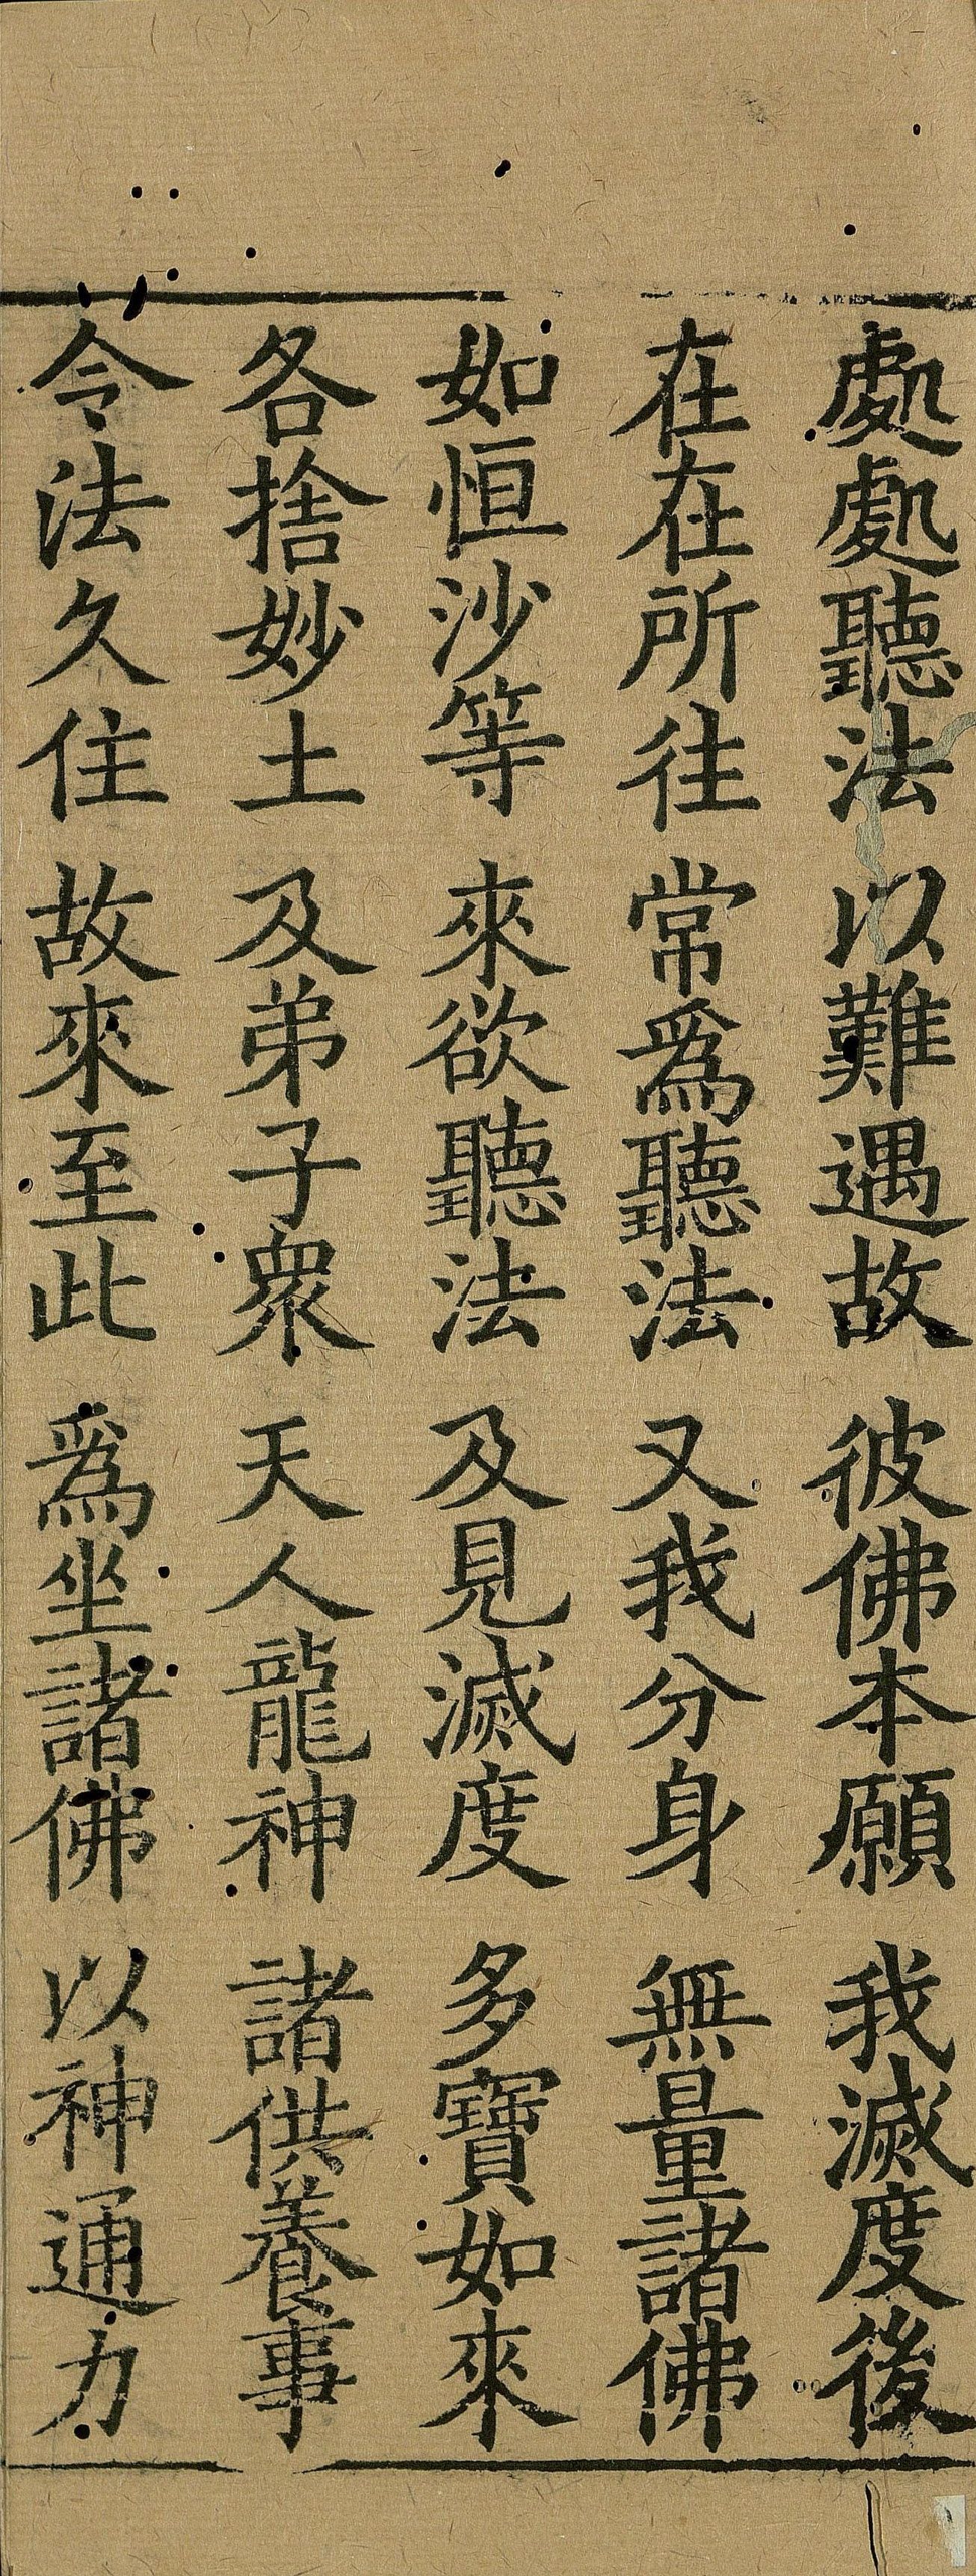 處處聽法 以難遇故 彼佛本願 我滅度後
在在所往 常爲聽法 又我分身 無量諸佛
如恒沙等 來欲聽法 及見滅度 多寶如來
各捨妙土 及弟子衆 天人龍神 諸供養事
令法久住 故來至此 爲坐諸佛 以神通力